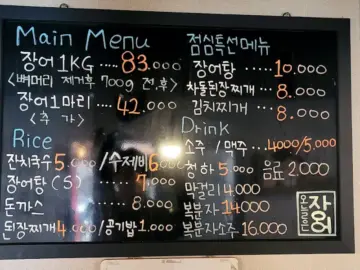 Main Menu
장어 1KG .... 83.000
<뼈머리 제거후 700g 전.후>
장어 1마리 .... 42.000
<추 가>
Rice
잔치국수 5.000 / 수제비 6.000
장어탕 (S) .... 7.000
돈까스 .... 8.000
된장찌개 4.000 / 공기밥 1.000
점심특선메뉴
장어탕 .... 10.000
차돌된장찌개 . 8.000
김치찌개 .. 8.000
Drink
소주 / 맥주 ... 4000/5.000
청하 5.000 음료 2.000
막걸리 4.000
복분자 14000
복분자소주 16.000
장어